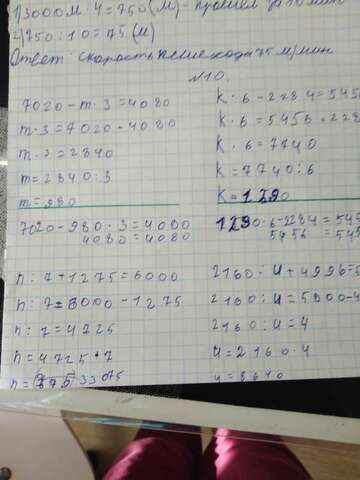 1) 3000 м : 4 = 750 (м) - прошел за 10 мин
2) 750 : 10 = 75 (м)
Ответ: скорость пешехода 75 м/мин
№10.
7020 - m · 3 = 4080
m · 3 = 7020 - 4080
m · 3 = 2840
m = 2840 : 3
m = 980
7020 - 980 · 3 = 4080
4080 = 4080
k · 6 - 2284 = 545
k · 6 = 5456 + 228
k · 6 = 7740
k = 7740 : 6
k = 1290
1290 · 6 - 2284 = 545
5456 = 545
n : 7 + 1275 = 6000
n : 7 = 6000 - 1275
n : 7 = 4725
n = 4725 · 7
n = 33075
2160 : u + 4996 = 5
2160 : u = 5000 - 4
2160 : u = 4
u = 2160 · 4
u = 8640